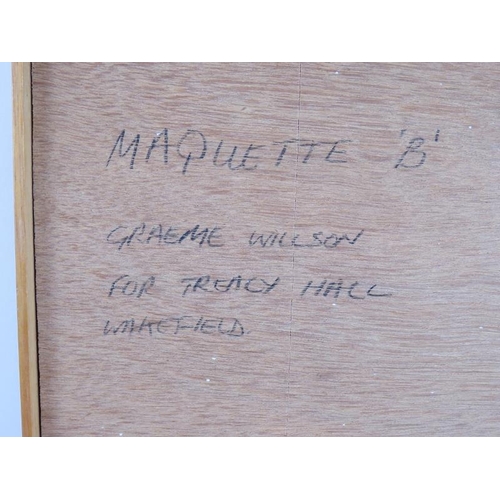 MAQUETTE 'B'
GRAEME WILLSON
FOR TREACY HALL
WAKEFIELD.